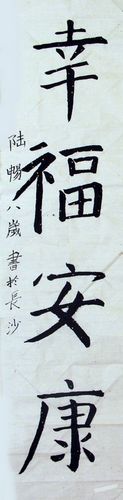 幸福安康
陆暢八歲書於長沙